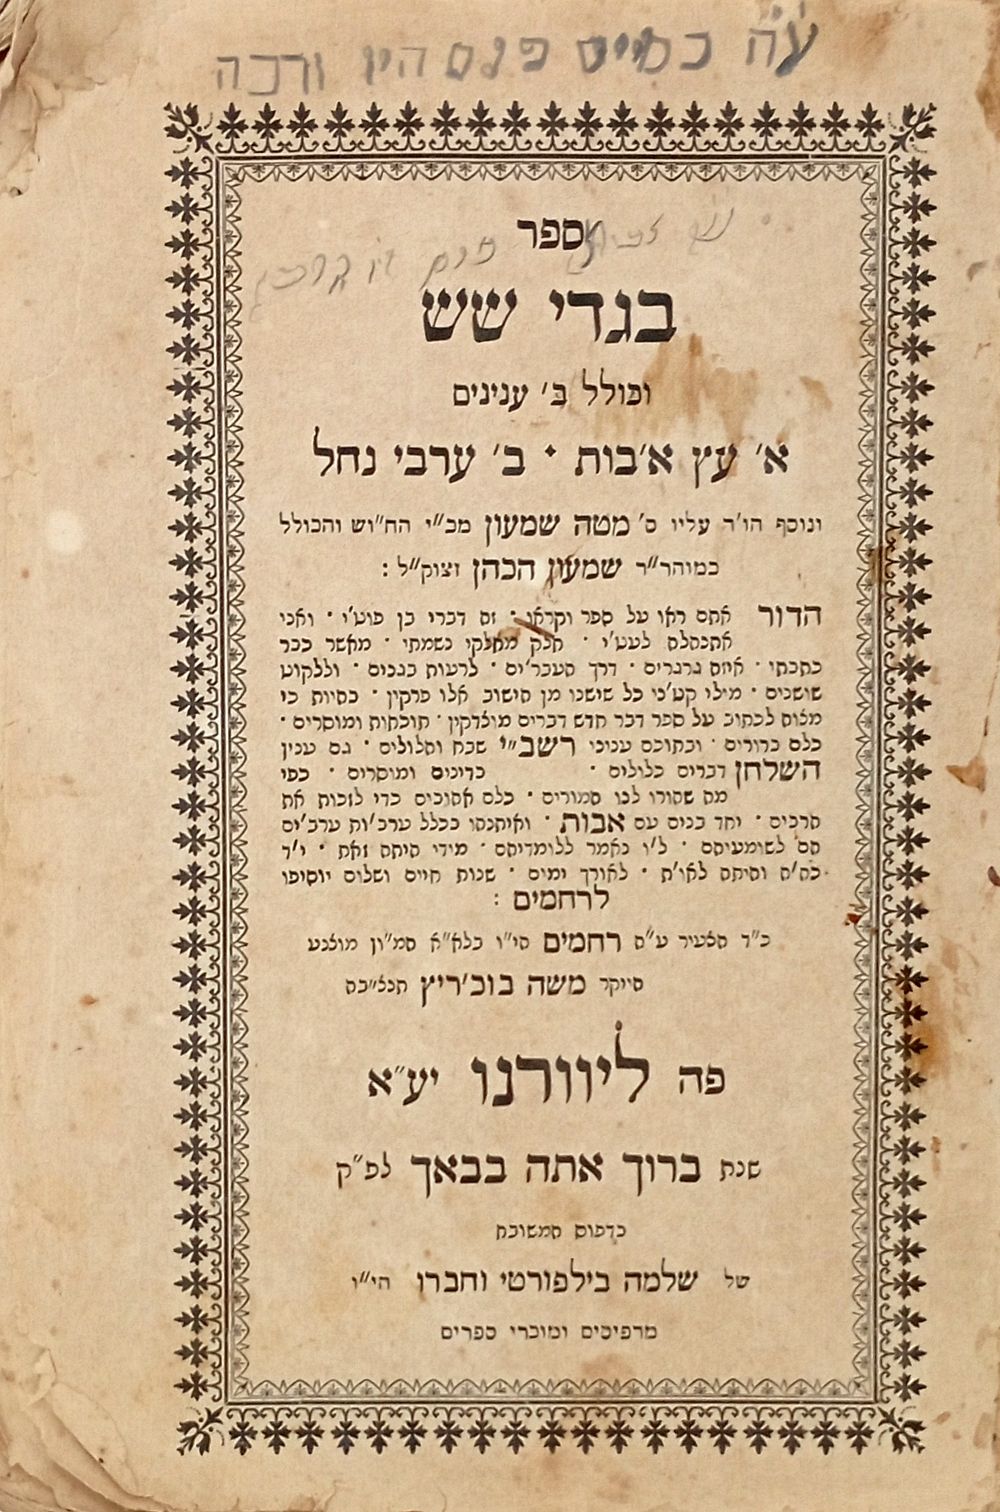 ע״ה כמייס פנס היו ורכה
ספר
בגדי שש
וכולל ב׳ ענינים
א׳ עץ א׳בות • ב׳ ערבי נחל
ונוסף הו׳ד עליו ס׳ מטה שמעון מכ״י הח״וש והכולל
כמוהר״ר שמעון הכהן זצוק״ל :
הדור אתם ראו על ספר וקראו • זה דברי בן פוט׳י • ואני
אתנהלה לעט׳י • חלק מחלקי נשמתי • מאשר כבר
כתבתי • אחת גרגרים • דרך העבר׳ים • לרעות בגנים • וללקוט
שושנים • מילי קט׳ני כל שישנו מן הישוב אלו פרקין • בהיות כי
מצוה לכתוב על ספר דבר חדש דברים מוצדקין • תוכחות ומוסרים •
כלם ברורים • ובתוכם עניני רשב״י שבח והלולים • גם ענין
השלחן דברים כלולים • בדינים ומוסרים • כפי
מה שהורו לנו המורים • כלם אהובים כדי לזכות את
הרבים • יחד בנים עם אבות • ואיתנהו בכלל ערב׳ות ערב׳ים
הם לשומעיהם • ל׳ו נאמר ללומדיהם • מידי היתה זאת • י׳ד
כה׳ה והיתה לאו׳ת • לאורך ימים • שנות חיים ושלום יוסיפו
לרחמים :
כ״ד הצעיר ע״ה רחמים הי״ו בלא״א המ״ון מוצנע
היקר משה בוכ׳ריץ תנצ״בה
פה ליוורנו יע״א
שנת ברוך אתה בבאך לפ״ק
בדפוס המשובח
של שלמה בילפורטי וחברו הי״ו
מדפיסים ומוכרי ספרים